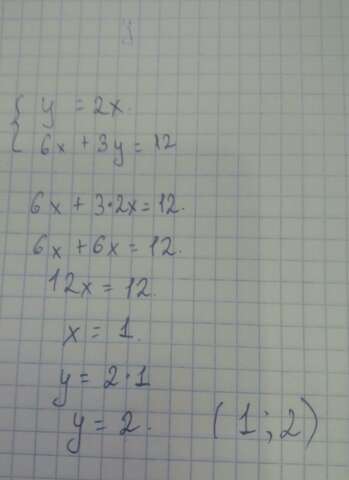 { y = 2x.
6x + 3y = 12
6x + 3·2x = 12.
6x + 6x = 12.
12x = 12.
x = 1.
y = 2·1
y = 2. (1; 2)